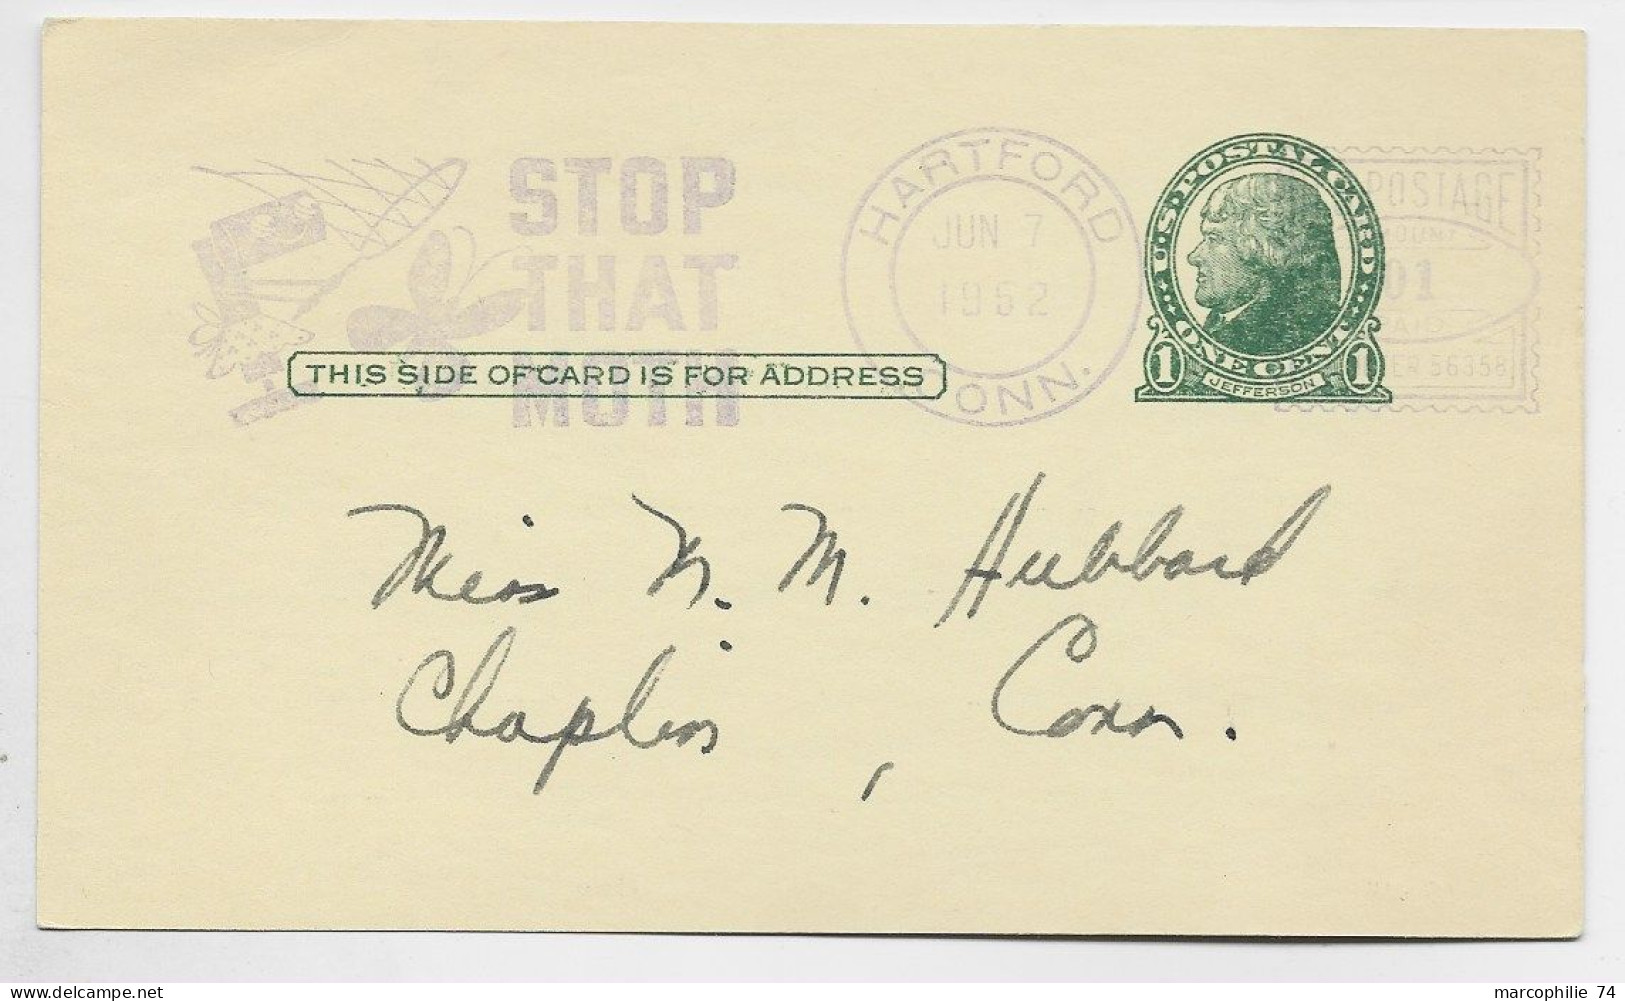 STOP
THAT
MOTH
HARTFORD
JUN 7
1952
CONN.
U.S. POSTAL CARD
1 ONE CENT 1
JEFFERSON
POSTAGE
01
56358
THIS SIDE OF CARD IS FOR ADDRESS
Miss N. M. Hubbard
Chaplin, Conn.
marcophilie 74